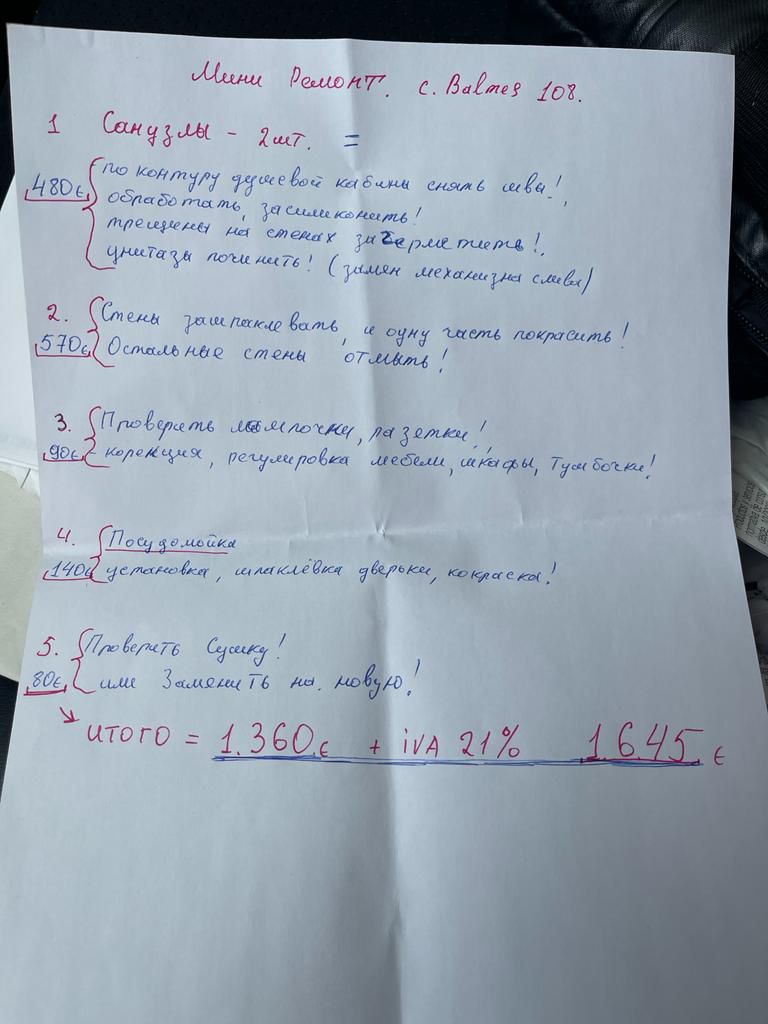 Мини Ремонт. c. Balmes 108.
1 Санузлы - 2шт. =
480€ по контуру душевой кабины снять швы!,
обработать, засиликонить!
трещены на стенах загерметить!.
унитазы починить! (замен механизма слива)
2. Стены зашпаклевать, и одну часть покрасить!
570€ Остальные стены отмыть!
3. Проверить лампочки, разетки!,
90€ корекция, регулировка мебели, шкафы, тумбочки!
4. Посудомойка
140€ установка, шпаклёвка дверьки, покраска!
5. Проверить Сушку!
80€ или Заменить на новую!
ИТОГО = 1.360.€ + iVA 21% 1645 €